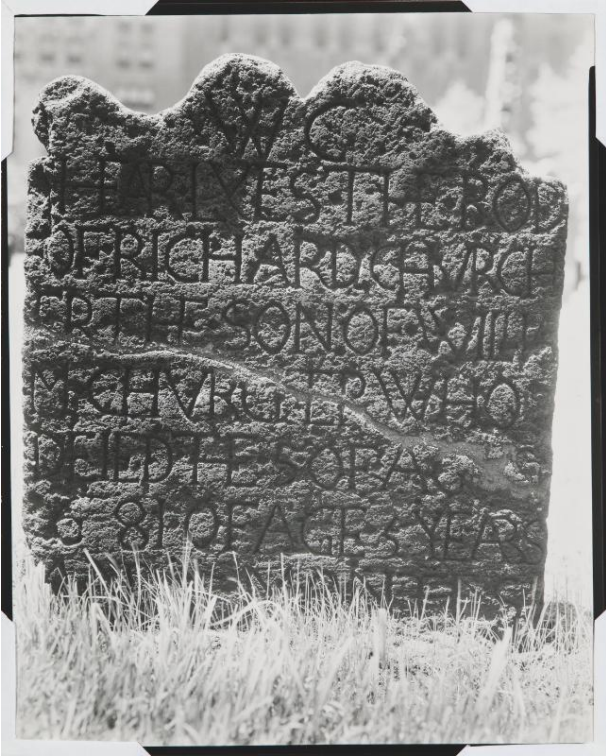 W C
HEAR·LYES·THE·BOD
OF RICHARD·CHVRCH
ER THE·SON·OF·WILLI
M·CHVRCHER WHO
DIED THE 5 OF
81·OF AGE 5 YEARS